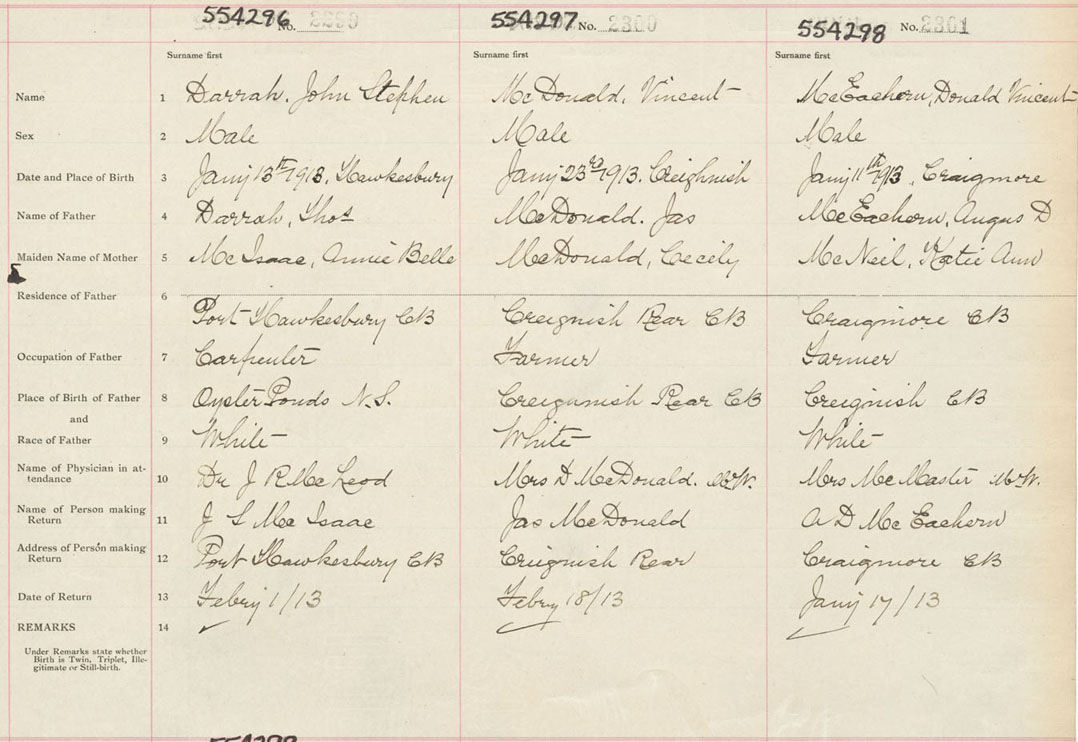 554296 No. 2299 554297 No. 2300 554298 No. 2301
Surname first Surname first Surname first
Name 1 Darrah, John Stephen McDonald, Vincent McEachern, Donald Vincent
Sex 2 Male Male Male
Date and Place of Birth 3 Jany 13th 1913, Hawkesbury Jany 23rd 1913. Creighnish Jany 11th 1913, Craigmore
Name of Father 4 Darrah, Thos McDonald. Jas McEachern, Angus D
Maiden Name of Mother 5 McIsaac, Annie Belle McDonald, Cecily McNeil, Katie Ann
Residence of Father 6 Port Hawkesbury CB Creignish Rear CB Craigmore CB
Occupation of Father 7 Carpenter Farmer Farmer
Place of Birth of Father 8 Oyster Ponds N.S. Creigunish Rear CB Creignish CB
and
Race of Father 9 White White White
Name of Physician in at-
tendance 10 Dr J R McLeod Mrs D McDonald. MW. Mrs McMaster MW.
Name of Person making
Return 11 J S McIsaac Jas McDonald A D McEachern
Address of Person making
Return 12 Port Hawkesbury CB Creignish Rear Craigmore CB
Date of Return 13 Febry 1/13 Febry 18/13 Jany 17/13
REMARKS 14
Under Remarks state whether
Birth is Twin, Triplet, Ille-
gitimate or Still-birth.